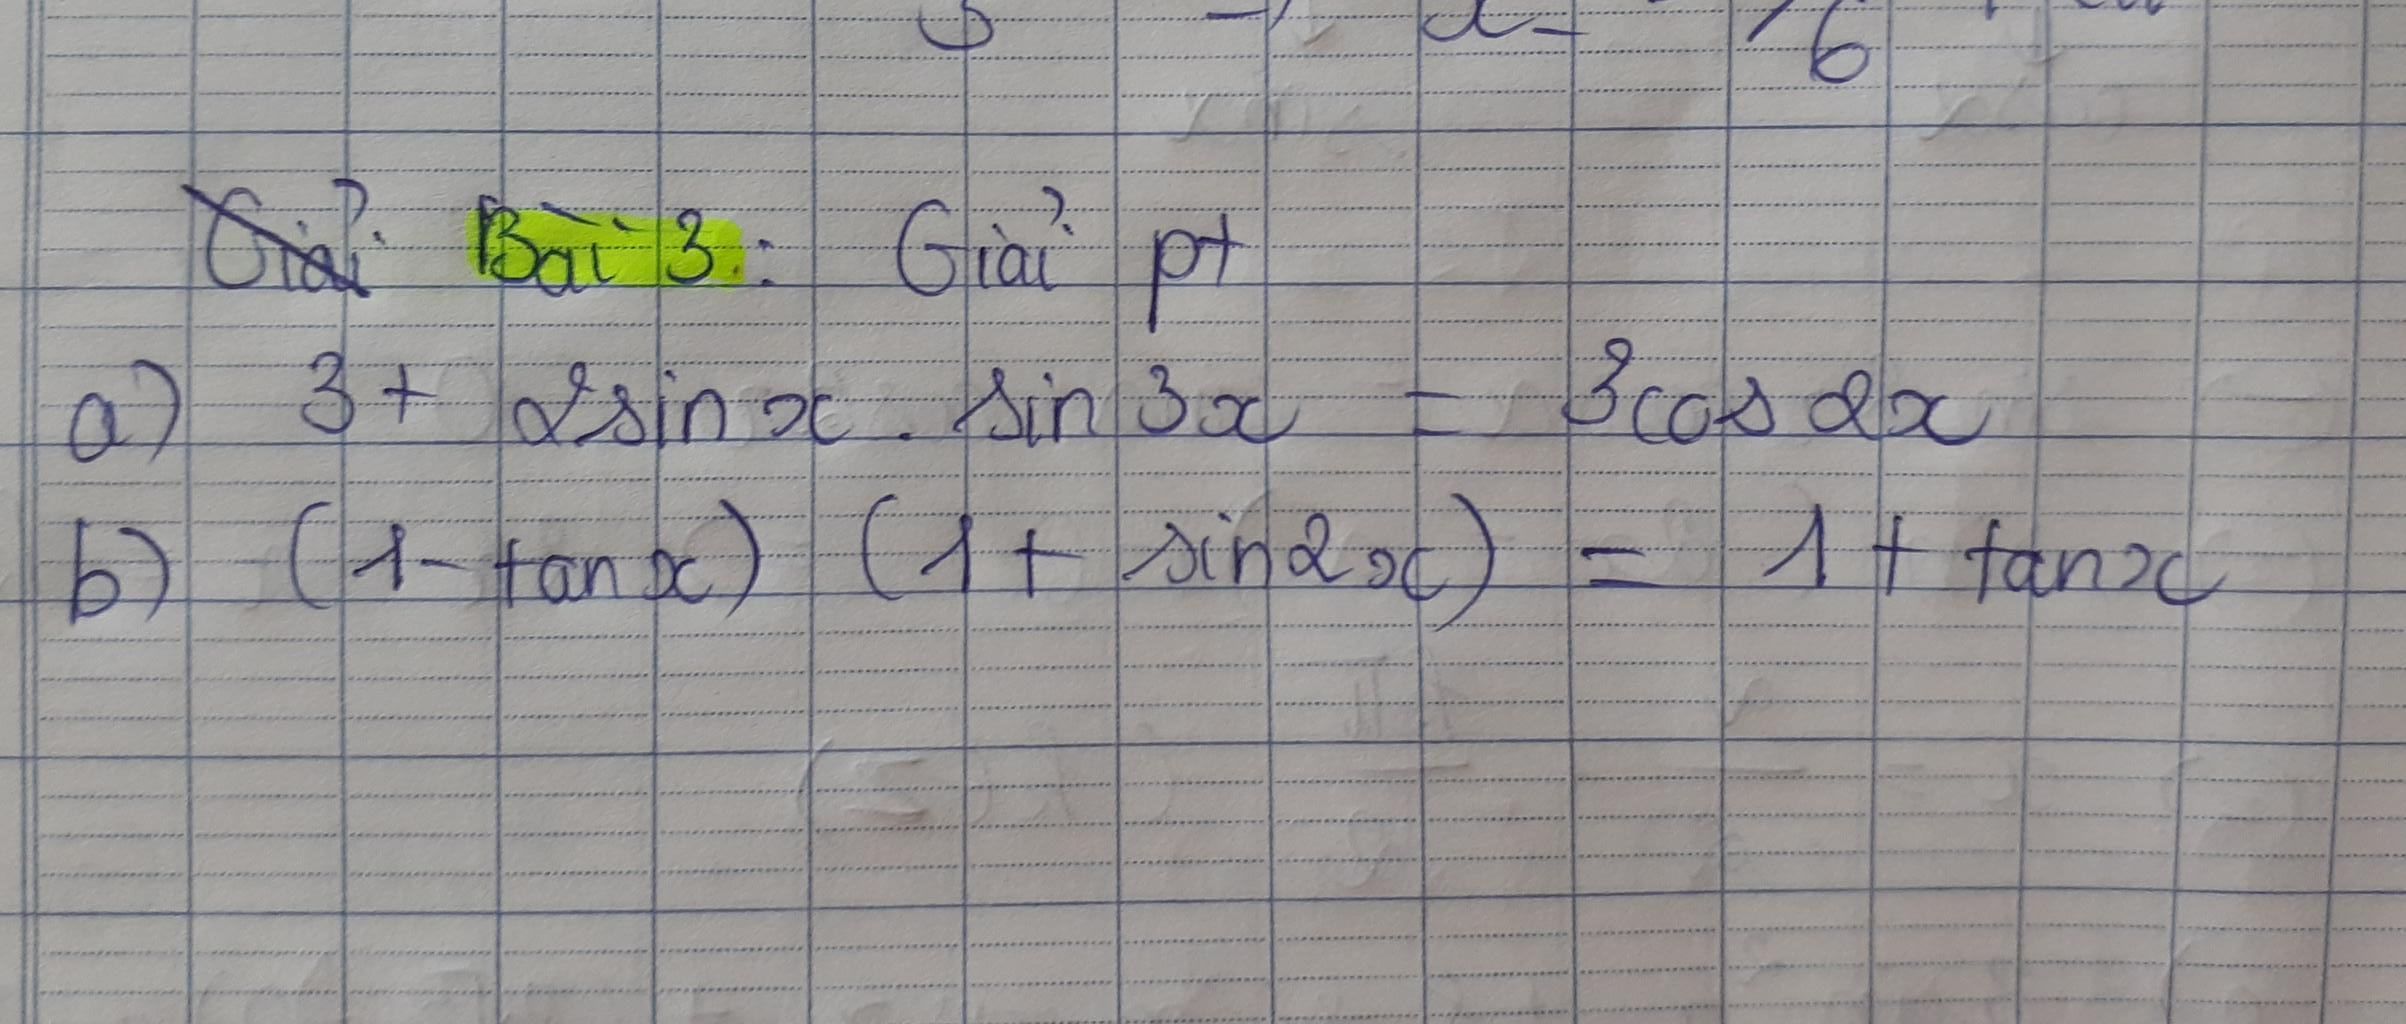 x = 6
Giải Bài 3: Giải pt
a) 3 + 2sin x . sin 3x = 3cos 2x
b) (1 - tan x) (1 + sin 2x) = 1 + tan x